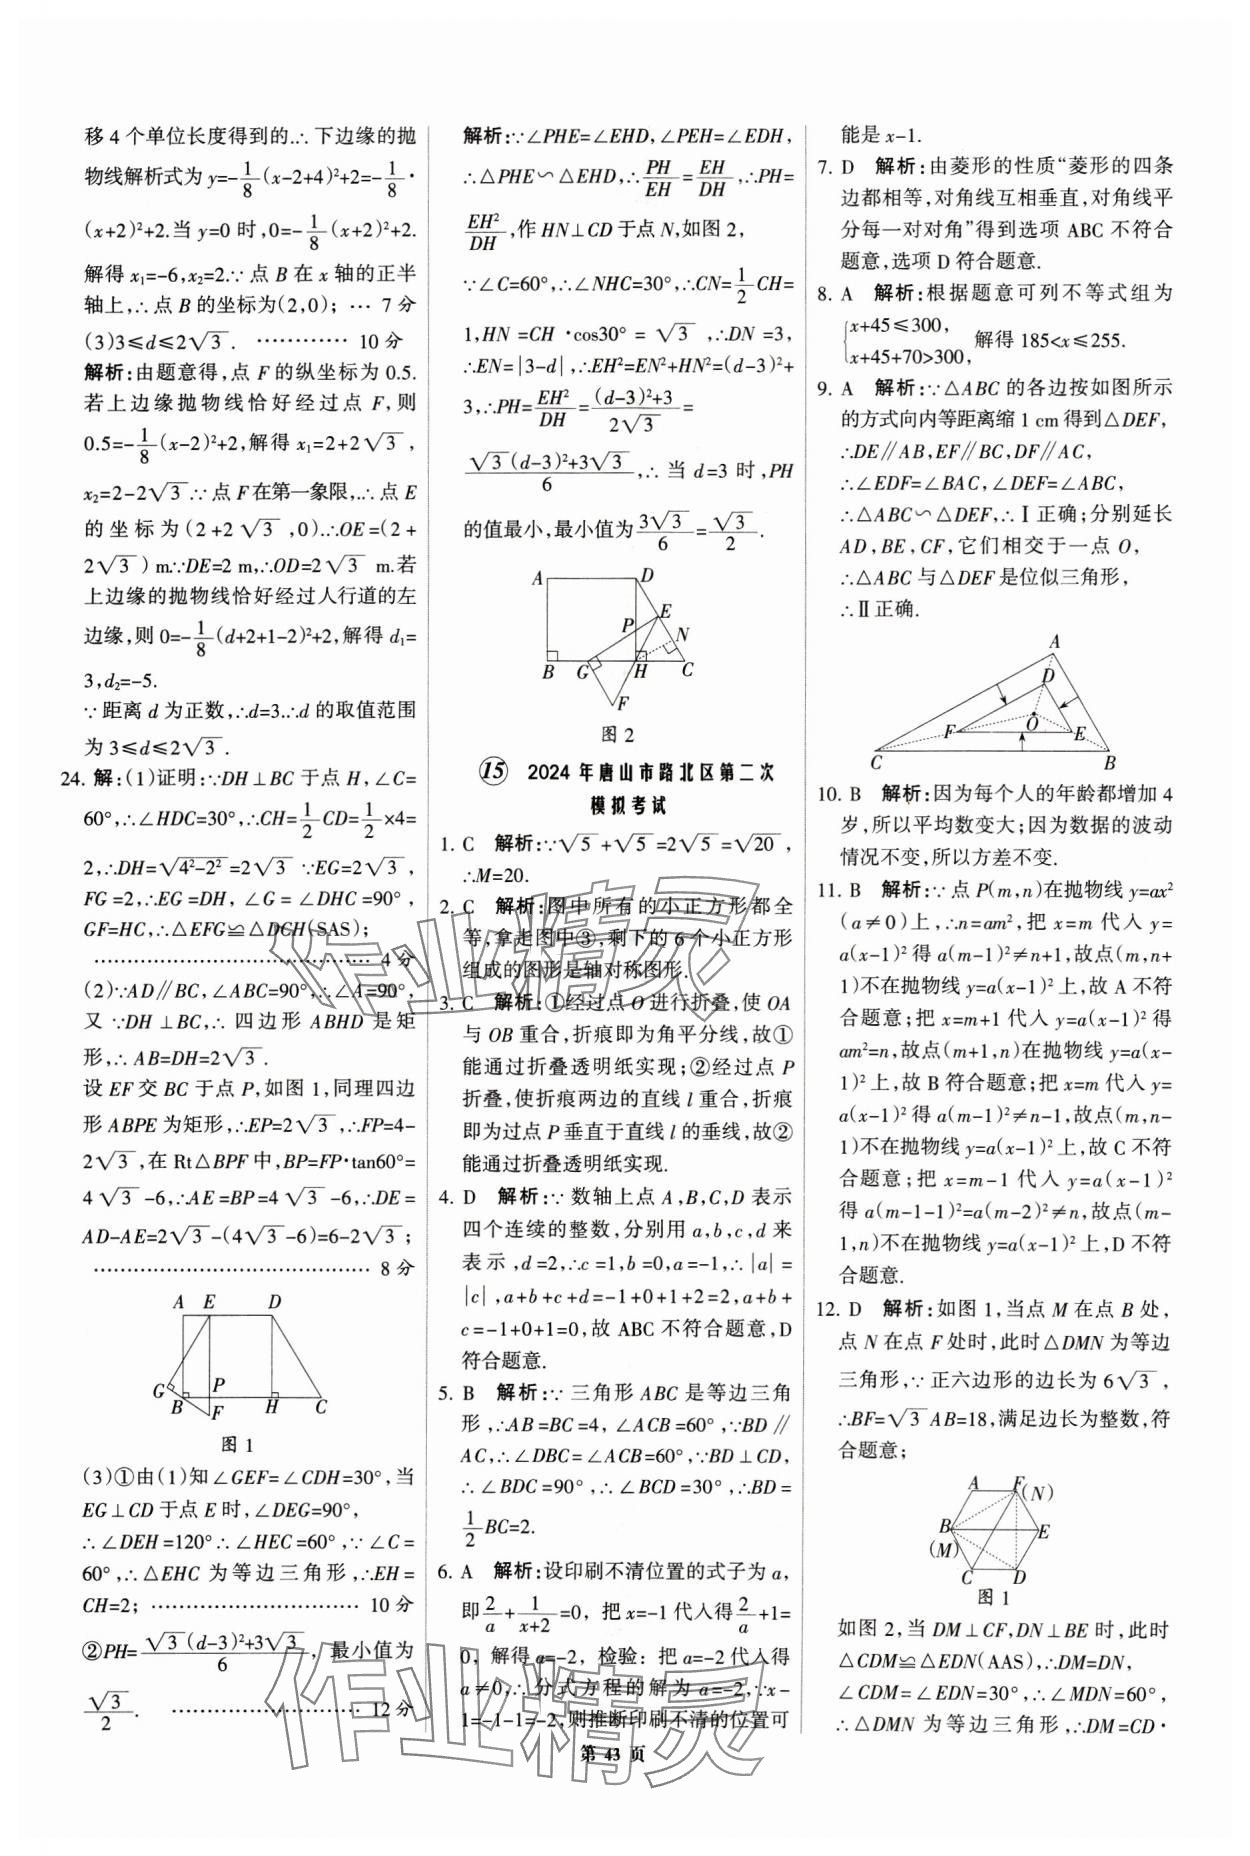 移4个单位长度得到的.∴下边缘的抛
物线解析式为y=-1/8(x-2+4)²+2=-1/8·
(x+2)²+2.当y=0时,0=-1/8(x+2)²+2.
解得x₁=-6,x₂=2.∵点B在x轴的正半
轴上,∴点B的坐标为(2,0); … 7分
(3)3≤d≤2√3. ………… 10分
解析:由题意得,点F的纵坐标为0.5.
若上边缘抛物线恰好经过点F,则
0.5=-1/8(x-2)²+2,解得x₁=2+2√3,
x₂=2-2√3∵点F在第一象限,∴点E
的坐标为(2+2√3,0).∴OE=(2+
2√3)m.∵DE=2 m,∴OD=2√3 m.若
上边缘的抛物线恰好经过人行道的左
边缘,则0=-1/8(d+2+1-2)²+2,解得d₁=
3,d₂=-5.
∵距离d为正数,∴d=3.∴d的取值范围
为3≤d≤2√3.
24. 解:(1)证明:∵DH⊥BC于点H,∠C=
60°,∴∠HDC=30°,∴CH=1/2CD=1/2×4=
2,∴DH=√(4²-2²)=2√3 ∵EG=2√3,
FG=2,∴EG=DH,∠G=∠DHC=90°,
GF=HC,∴△EFG≌△DCH(SAS);
………………………………… 4分
(2)∵AD∥BC,∠ABC=90°,∴∠A=90°,
又∵DH⊥BC,∴四边形ABHD是矩
形,∴AB=DH=2√3.
设EF交BC于点P,如图1,同理四边
形ABPE为矩形,∴EP=2√3,∴FP=4-
2√3,在Rt△BPF中,BP=FP·tan60°=
4√3-6,∴AE=BP=4√3-6,∴DE=
AD-AE=2√3-(4√3-6)=6-2√3;
………………………………… 8分
A E D
G B P F H C
图1
(3)①由(1)知∠GEF=∠CDH=30°,当
EG⊥CD于点E时,∠DEG=90°,
∴∠DEH=120°∴∠HEC=60°∵∠C=
60°,∴△EHC为等边三角形,∴EH=
CH=2; ………………………… 10分
②PH=(√3(d-3)²+3√3)/6,最小值为
√3/2. ……………………… 12分
解析:∵∠PHE=∠EHD,∠PEH=∠EDH,
∴△PHE∽△EHD,∴PH/EH=EH/DH,∴PH=
EH²/DH,作HN⊥CD于点N,如图2,
∵∠C=60°,∴∠NHC=30°,∴CN=1/2CH=
1,HN=CH·cos30°=√3,∴DN=3,
∴EN=|3-d|,∴EH²=EN²+HN²=(d-3)²+
3,∴PH=EH²/DH=((d-3)²+3)/(2√3)=
(√3(d-3)²+3√3)/6,∴当d=3时,PH
的值最小,最小值为3√3/6=√3/2.
A D
P E N
B G H C
F
图2
⑮ 2024年唐山市路北区第二次
模拟考试
1. C 解析:∵√5+√5=2√5=√20,
∴M=20.
2. C 解析:图中所有的小正方形都全
等,拿走图中③,剩下的6个小正方形
组成的图形是轴对称图形.
3. C 解析:①经过点O进行折叠,使OA
与OB重合,折痕即为角平分线,故①
能通过折叠透明纸实现;②经过点P
折叠,使折痕两边的直线l重合,折痕
即为过点P垂直于直线l的垂线,故②
能通过折叠透明纸实现.
4. D 解析:∵数轴上点A,B,C,D表示
四个连续的整数,分别用a,b,c,d来
表示,d=2,∴c=1,b=0,a=-1,∴|a|=
|c|,a+b+c+d=-1+0+1+2=2,a+b+
c=-1+0+1=0,故ABC不符合题意,D
符合题意.
5. B 解析:∵三角形ABC是等边三角
形,∴AB=BC=4,∠ACB=60°,∵BD∥
AC,∴∠DBC=∠ACB=60°,∵BD⊥CD,
∴∠BDC=90°,∴∠BCD=30°,∴BD=
1/2BC=2.
6. A 解析:设印刷不清位置的式子为a,
即2/a+1/(x+2)=0,把x=-1代入得2/a+1=
0,解得a=-2,检验:把a=-2代入得
a≠0,∴分式方程的解为a=-2,∵x-
1=-1-1=-2,则推断印刷不清的位置可
能是x-1.
7. D 解析:由菱形的性质“菱形的四条
边都相等,对角线互相垂直,对角线平
分每一对对角”得到选项ABC不符合
题意,选项D符合题意.
8. A 解析:根据题意可列不等式组为
{x+45≤300,
x+45+70>300, 解得185<x≤255.
9. A 解析:∵△ABC的各边按如图所示
的方式向内等距离缩1 cm得到△DEF,
∴DE∥AB,EF∥BC,DF∥AC,
∴∠EDF=∠BAC,∠DEF=∠ABC,
∴△ABC∽△DEF,∴Ⅰ正确;分别延长
AD,BE,CF,它们相交于一点O,
∴△ABC与△DEF是位似三角形,
∴Ⅱ正确.
A
D
F O E
C B
10. B 解析:因为每个人的年龄都增加4
岁,所以平均数变大;因为数据的波动
情况不变,所以方差不变.
11. B 解析:∵点P(m,n)在抛物线y=ax²
(a≠0)上,∴n=am²,把x=m代入y=
a(x-1)²得a(m-1)²≠n+1,故点(m,n+
1)不在抛物线y=a(x-1)²上,故A不符
合题意;把x=m+1代入y=a(x-1)²得
am²=n,故点(m+1,n)在抛物线y=a(x-
1)²上,故B符合题意;把x=m代入y=
a(x-1)²得a(m-1)²≠n-1,故点(m,n-
1)不在抛物线y=a(x-1)²上,故C不符
合题意;把x=m-1代入y=a(x-1)²
得a(m-1-1)²=a(m-2)²≠n,故点(m-
1,n)不在抛物线y=a(x-1)²上,D不符
合题意.
12. D 解析:如图1,当点M在点B处,
点N在点F处时,此时△DMN为等边
三角形,∵正六边形的边长为6√3,
∴BF=√3AB=18,满足边长为整数,符
合题意;
A F(N)
B(M) E
C D
图1
如图2,当DM⊥CF,DN⊥BE时,此时
△CDM≌△EDN(AAS),∴DM=DN,
∠CDM=∠EDN=30°,∴∠MDN=60°,
∴△DMN为等边三角形,∴DM=CD·
第 43 页
作业精灵
作业精灵